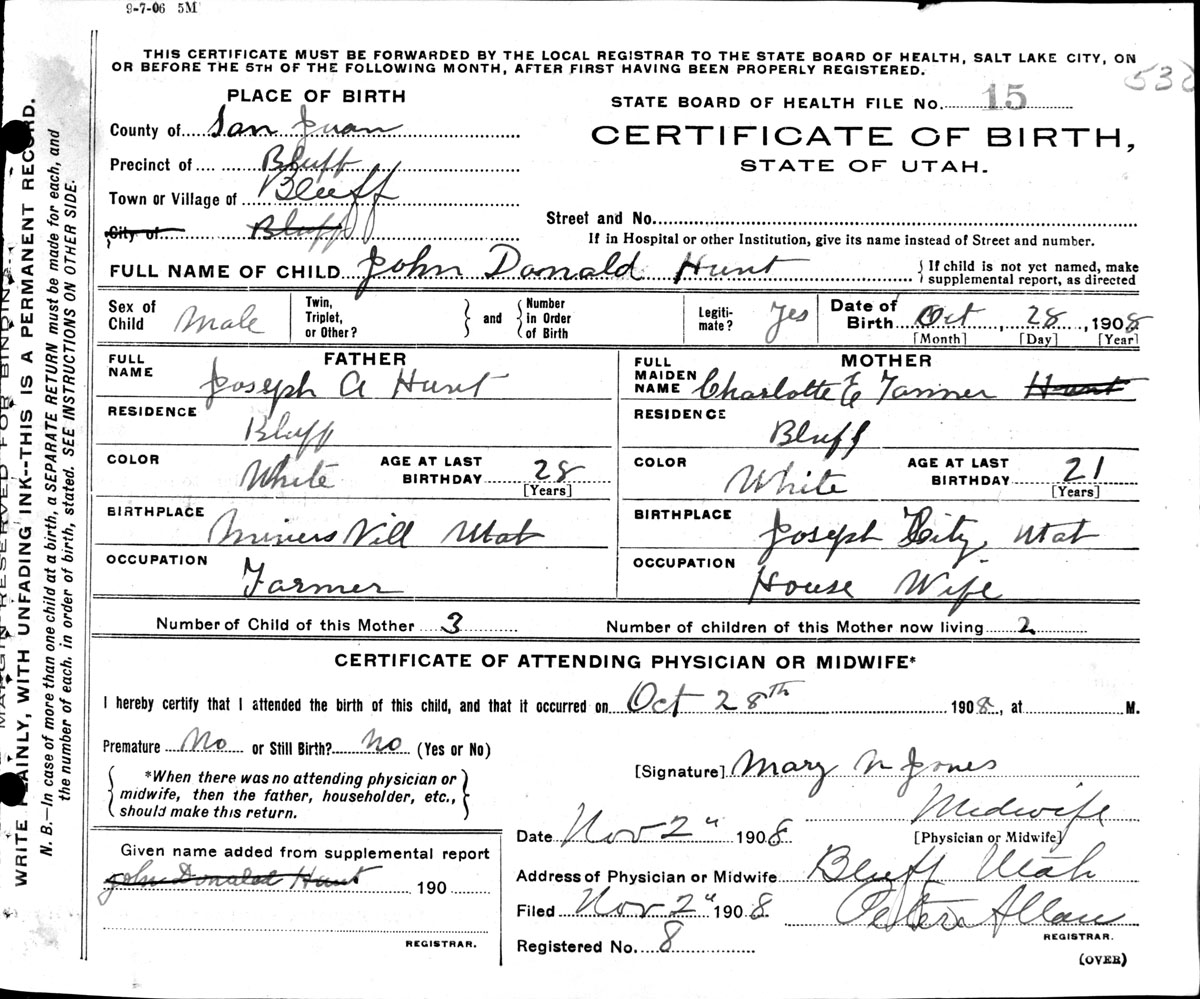 9-7-06 5M
THIS CERTIFICATE MUST BE FORWARDED BY THE LOCAL REGISTRAR TO THE STATE BOARD OF HEALTH, SALT LAKE CITY, ON
OR BEFORE THE 5TH OF THE FOLLOWING MONTH, AFTER FIRST HAVING BEEN PROPERLY REGISTERED.
PLACE OF BIRTH
County of San Juan
Precinct of Bluff
Town or Village of Bluff
City of Bluff
STATE BOARD OF HEALTH FILE No. 15
CERTIFICATE OF BIRTH,
STATE OF UTAH.
Street and No.
If in Hospital or other Institution, give its name instead of Street and number.
FULL NAME OF CHILD John Donald Hunt { If child is not yet named, make
supplemental report, as directed
Sex of Child Male
Twin, Triplet, or Other? } and { Number in Order of Birth
Legiti-mate? Yes
Date of Birth Oct, 28, 1908
[Month] [Day] [Year]
FATHER
FULL NAME Joseph A Hunt
RESIDENCE Bluff
COLOR White AGE AT LAST BIRTHDAY 28
[Years]
BIRTHPLACE Miners Vill Utah
OCCUPATION Farmer
MOTHER
FULL MAIDEN NAME Charlotte E Tanner Hunt
RESIDENCE Bluff
COLOR White AGE AT LAST BIRTHDAY 21
[Years]
BIRTHPLACE Joseph City, Utah
OCCUPATION House Wife
Number of Child of this Mother 3 Number of children of this Mother now living 2
CERTIFICATE OF ATTENDING PHYSICIAN OR MIDWIFE*
I hereby certify that I attended the birth of this child, and that it occurred on Oct 28th 1908, at M.
Premature No or Still Birth? No (Yes or No)
{ *When there was no attending physician or
midwife, then the father, householder, etc.,
should make this return. }
Given name added from supplemental report
John Donald Hunt 190
REGISTRAR.
[Signature] Mary N Jones
Midwife
Date Nov 2" 1908 [Physician or Midwife]
Address of Physician or Midwife Bluff Utah
Filed Nov 2" 1908 Peter Allan
REGISTRAR.
Registered No. 8
(OVER)
MARGIN RESERVED FOR BINDING
WRITE PLAINLY, WITH UNFADING INK--THIS IS A PERMANENT RECORD.
N. B.—In case of more than one child at a birth, a SEPARATE RETURN must be made for each, and
the number of each, in order of birth, stated. SEE INSTRUCTIONS ON OTHER SIDE.